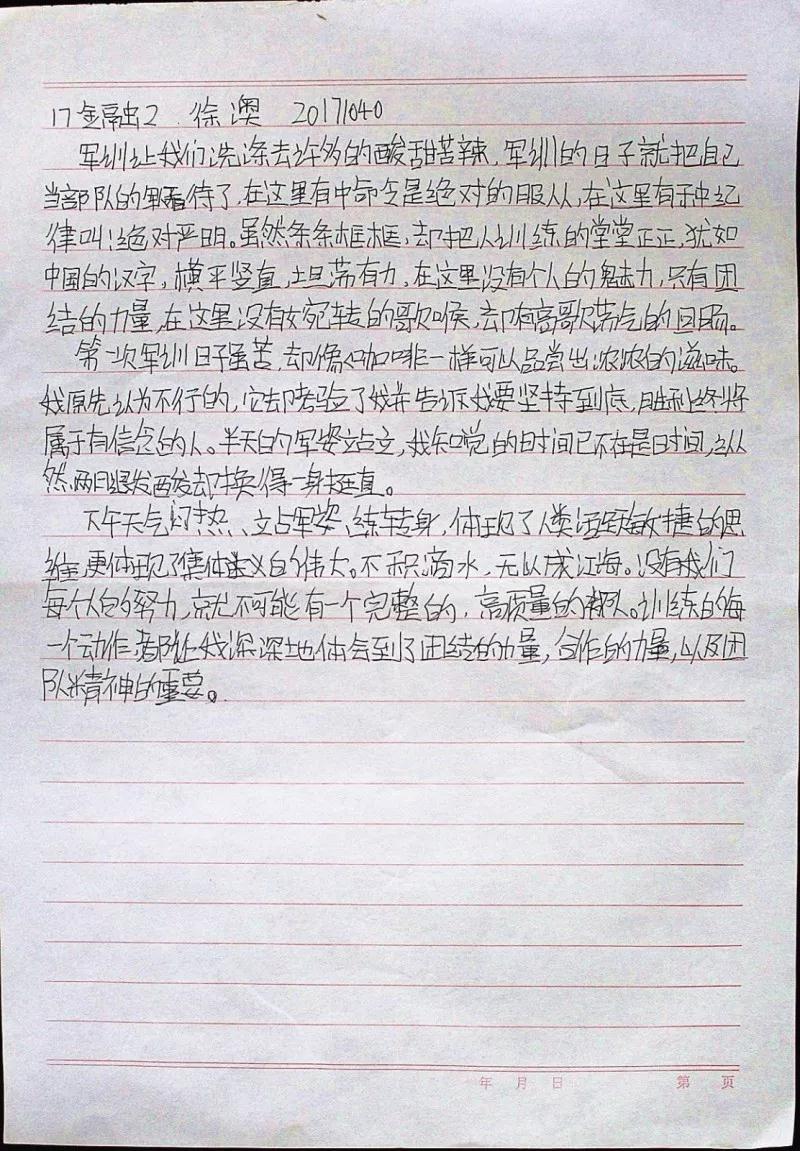 17金融出2 徐澳 20171040
军训让我们洗涤去许多的酸甜苦辣，军训的日子就把自己
当部队的军看待了，在这里有中命令是绝对的服从，在这里有种纪
律叫绝对严明。虽然条条框框，却把人训练的堂堂正正，犹如
中国的汉字，横平竖直，坦荡有力，在这里没有个人的魅力，只有团
结的力量，在这里没有婉转的歌喉，却有高歌荡气的回肠。
第一次军训日子虽苦，却像咖啡一样可以品尝出浓浓的滋味。
我原先认为不行的，它却考验了我并告诉我要坚持到底，胜利终将
属于有信念的人。半天的军姿站立，我知觉的时间已不在是时间，纵
然两腿发酸却换得一身挺直。
下午天气闷热、立占军姿、练转身，体现了人类活跃敏捷的思
维，更体现了集体主义的伟大。不积滴水，无以成江海。没有我们
每个人的努力，就不可能有一个完整的，高质量的部队。训练的每
一个动作都让我深深地体会到了团结的力量，合作的力量，以及团
队精神的重要。
年 月 日 第 页